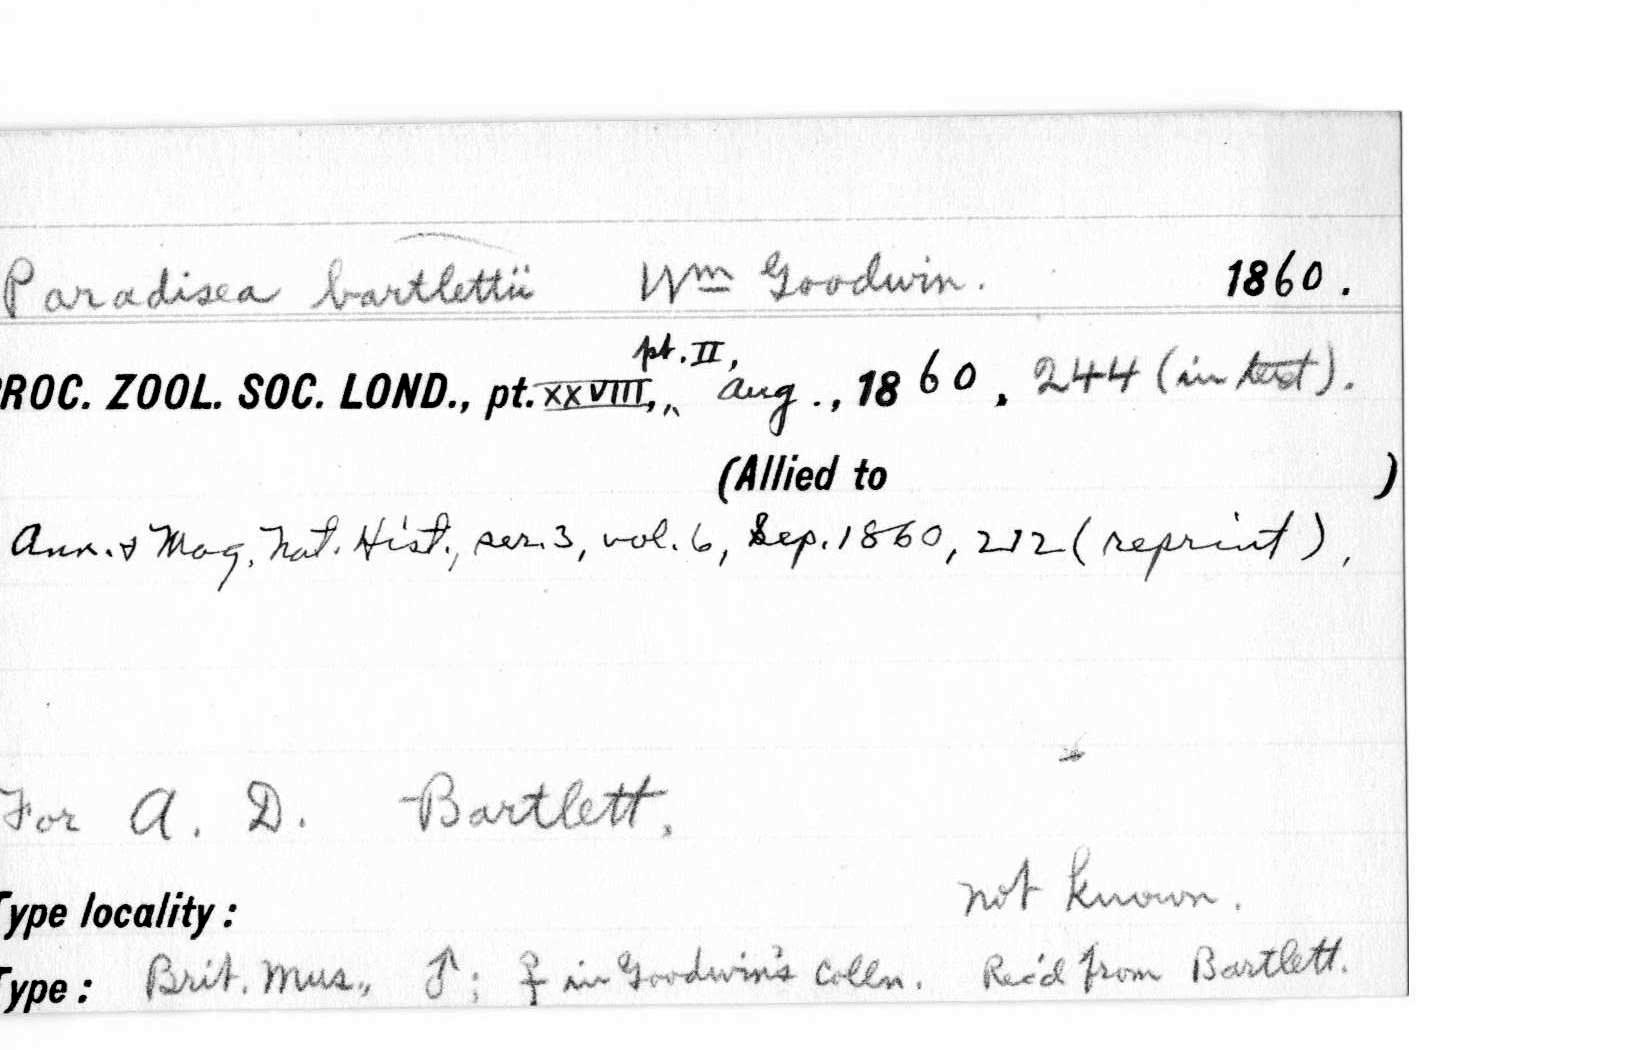 Paradisea bartlettii Wm Goodwin. 1860.
pt. II,
PROC. ZOOL. SOC. LOND., pt. XXVIII, Aug., 1860, 244 (in text).
(Allied to )
Ann. & Mag. Nat. Hist., ser. 3, vol. 6, Sep. 1860, 212 (reprint),
For A. D. Bartlett.
Type locality: not known.
Type: Brit. Mus., ♂; ♀ in Goodwin's Colln. Rec'd from Bartlett.